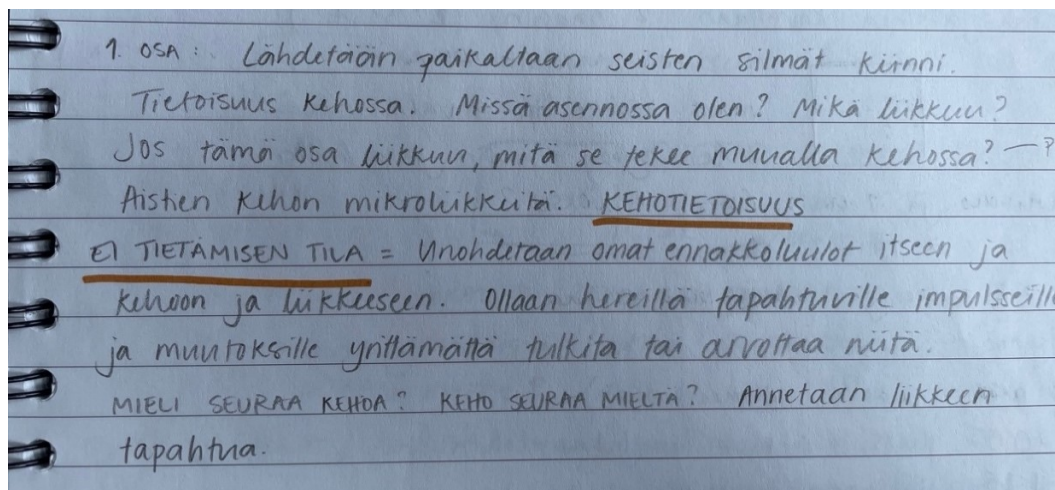 1. OSA : Lähdetään paikaltaan seisten silmät kiinni.
Tietoisuus kehossa. Missä asennossa olen? Mikä liikkuu?
Jos tämä osa liikkuu, mitä se tekee muualla kehossa? —?
Aistien kehon mikroliikkeitä. KEHOTIETOISUUS
EI TIETÄMISEN TILA = Unohdetaan omat ennakkoluulot itseen ja
kehoon ja liikkeeseen. Ollaan hereillä tapahtuville impulsseille
ja muutoksille yrittämättä tulkita tai arvottaa niitä.
MIELI SEURAA KEHOA? KEHO SEURAA MIELTÄ? Annetaan liikkeen
tapahtua.